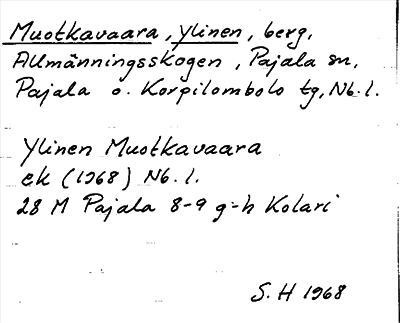 Muotkavaara, Ylinen, berg,
Allmänningsskogen, Pajala sn,
Pajala o. Korpilombolo tg, Nb. l.
Ylinen Muotkavaara
ek (1968) Nb. l.
28 M Pajala 8-9 g-h Kolari
S. H 1968